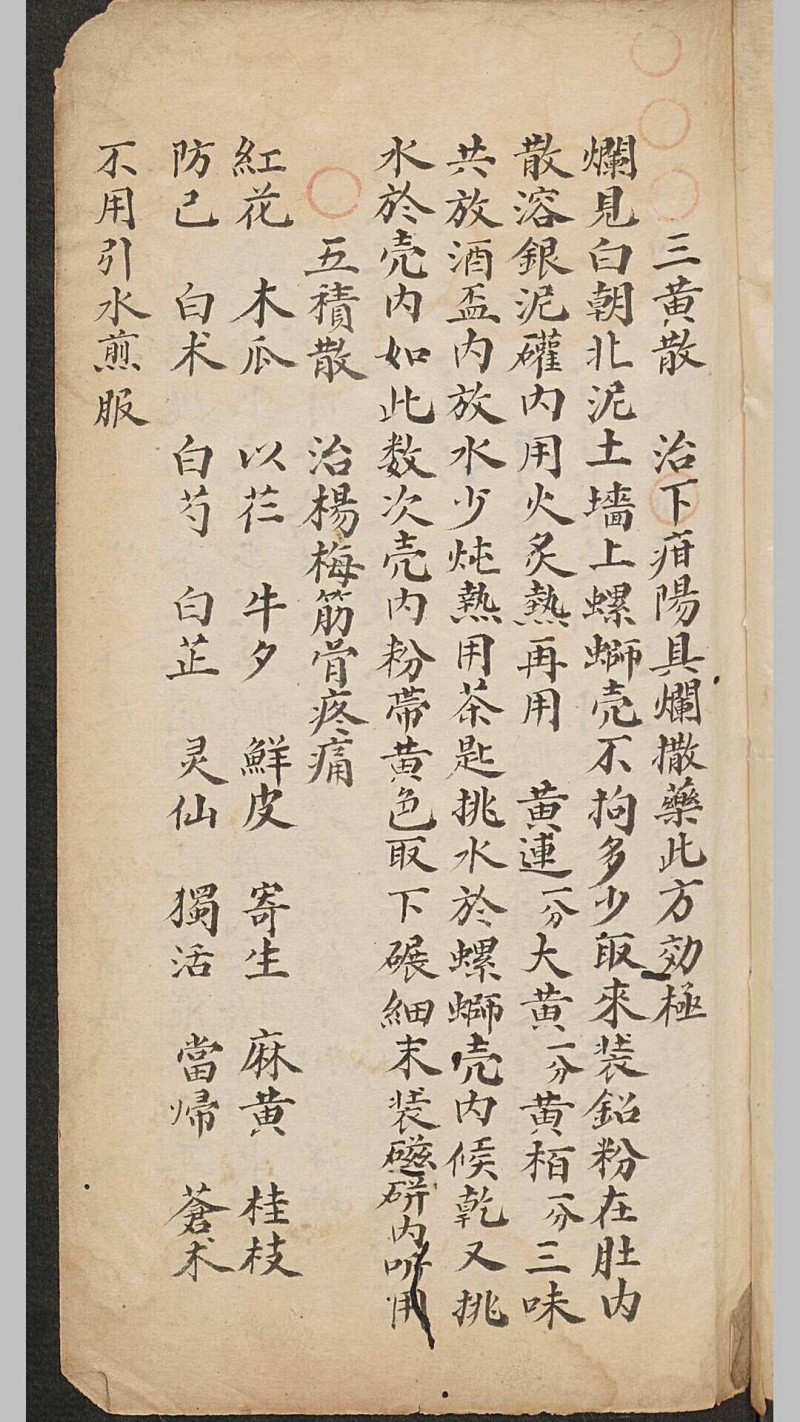 三黄散 治下疳陽具爛撒藥此方効極
爛見白朝北泥土墻上螺螄壳不拘多少取來裝鉛粉在肚内
散溶銀泥礶内用火炙熱再用 黄連一分大黄一分黄栢一分三味
共放酒盃内放水少炖熱用茶匙挑水於螺螄壳内候乾又挑
水於壳内如此数次壳内粉帶黄色取下碾細末裝磁硑内听用
五積散 治楊梅筋骨疼痛
紅花 木瓜 以苡 牛夕 鮮皮 寄生 麻黄 桂枝
防已 白术 白芍 白芷 灵仙 獨活 當帰 蒼术
不用引水煎服